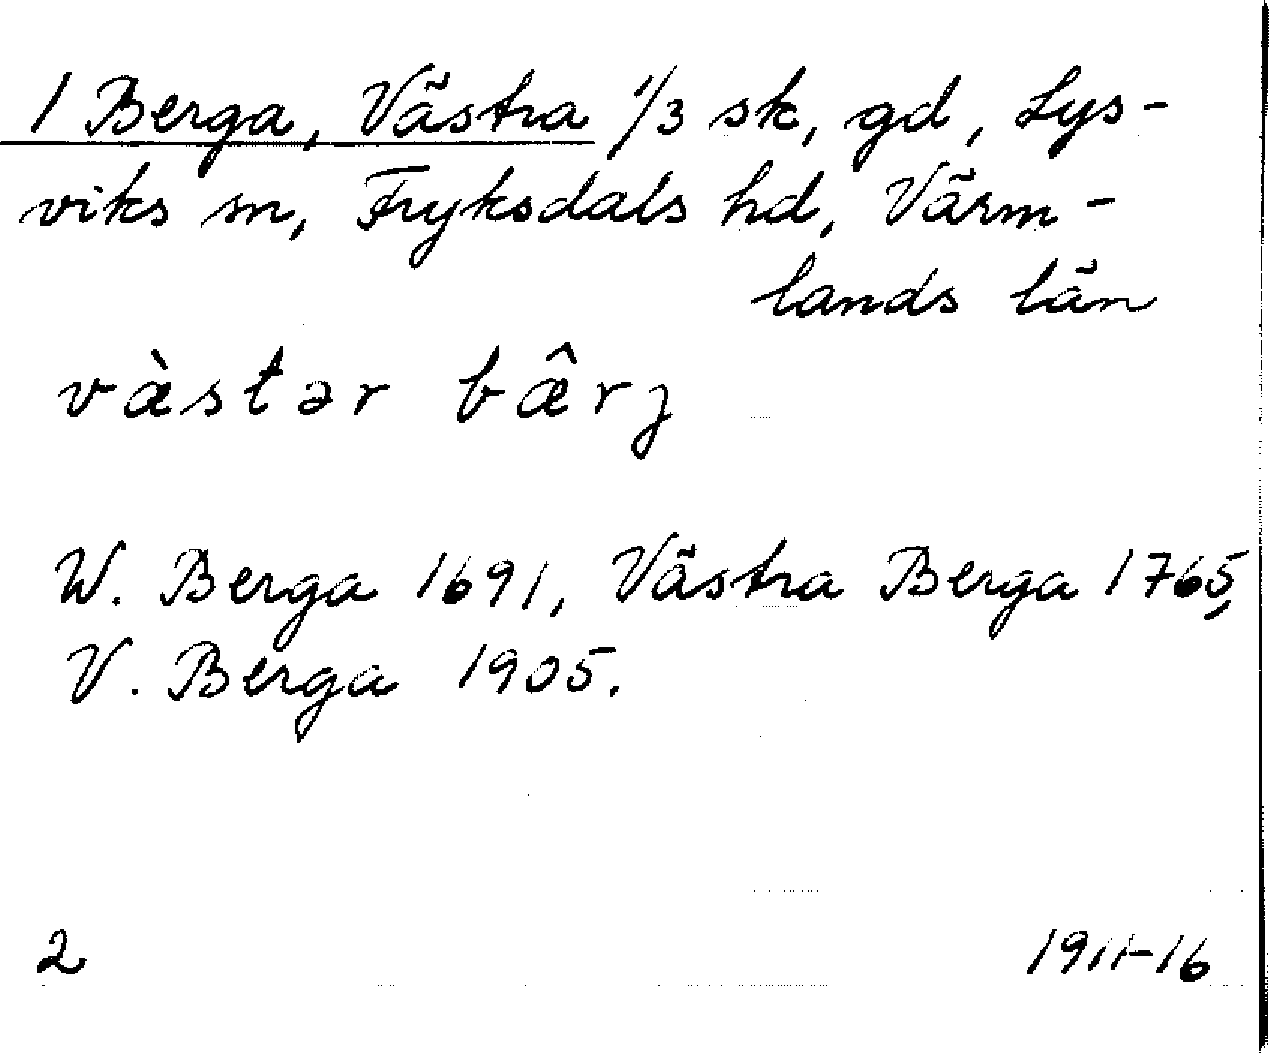 1 Berga, Västra 1/3 sk, gd, Lys-
viks sn, Fryksdals hd, Värm-
lands län
vàstər bæ̂rʒ
W. Berga 1691, Västra Berga 1765,
V. Berga 1905.
2
1911-16